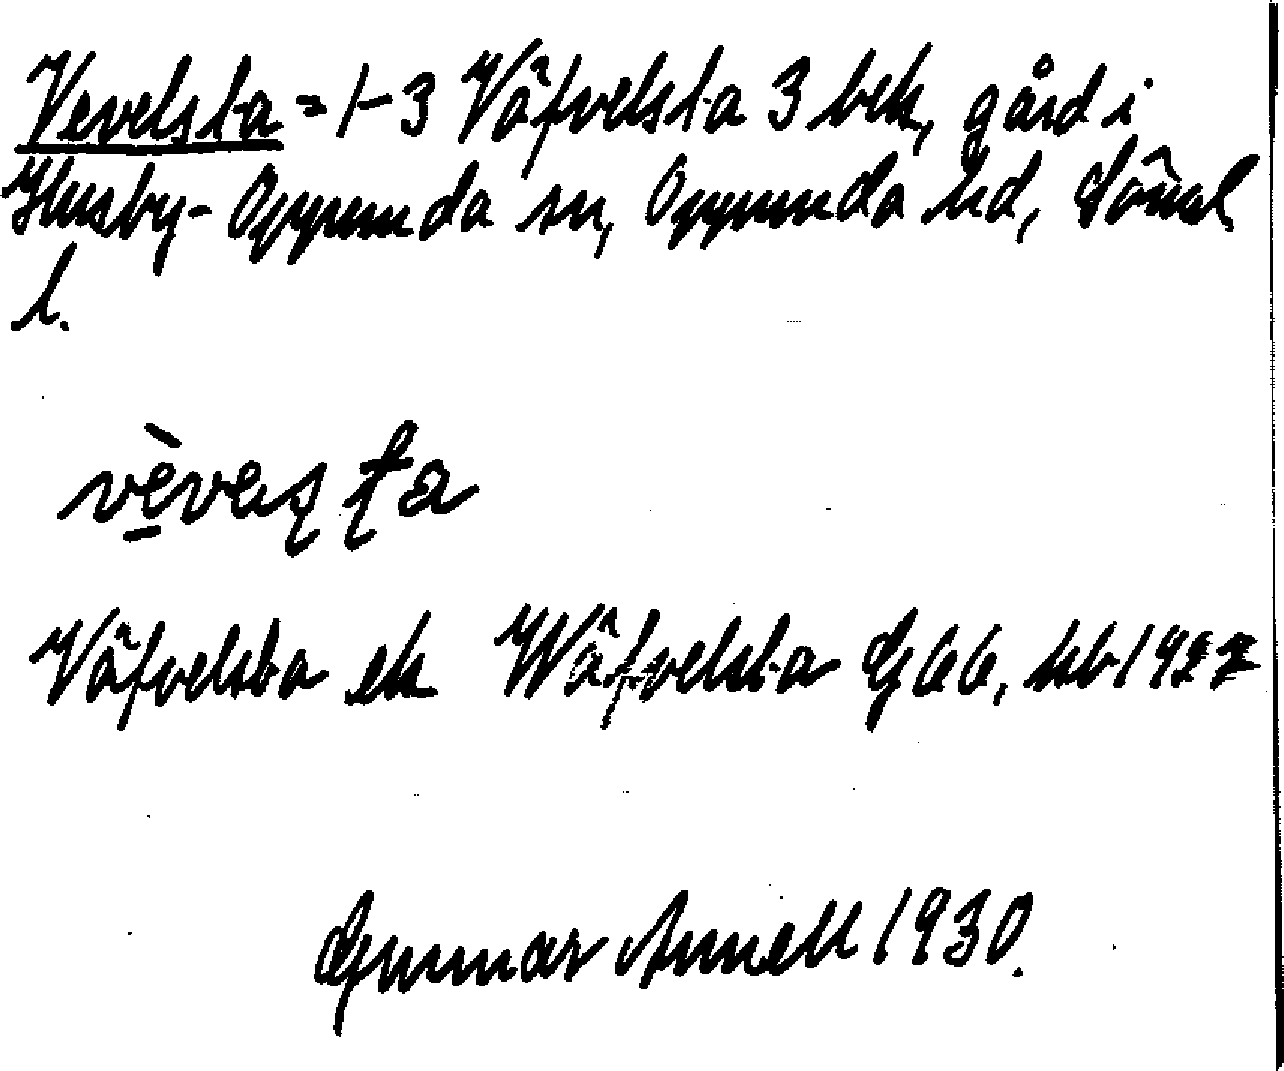 Vevelsta = 1-3 Väfvelsta 3 bek, gård i
Husby-Oppunda sn, Oppunda hd, Sörml.
l.
Väfvelsta ek Wäfvelsta G66, hb 1922
Gunnar Annell 1930.